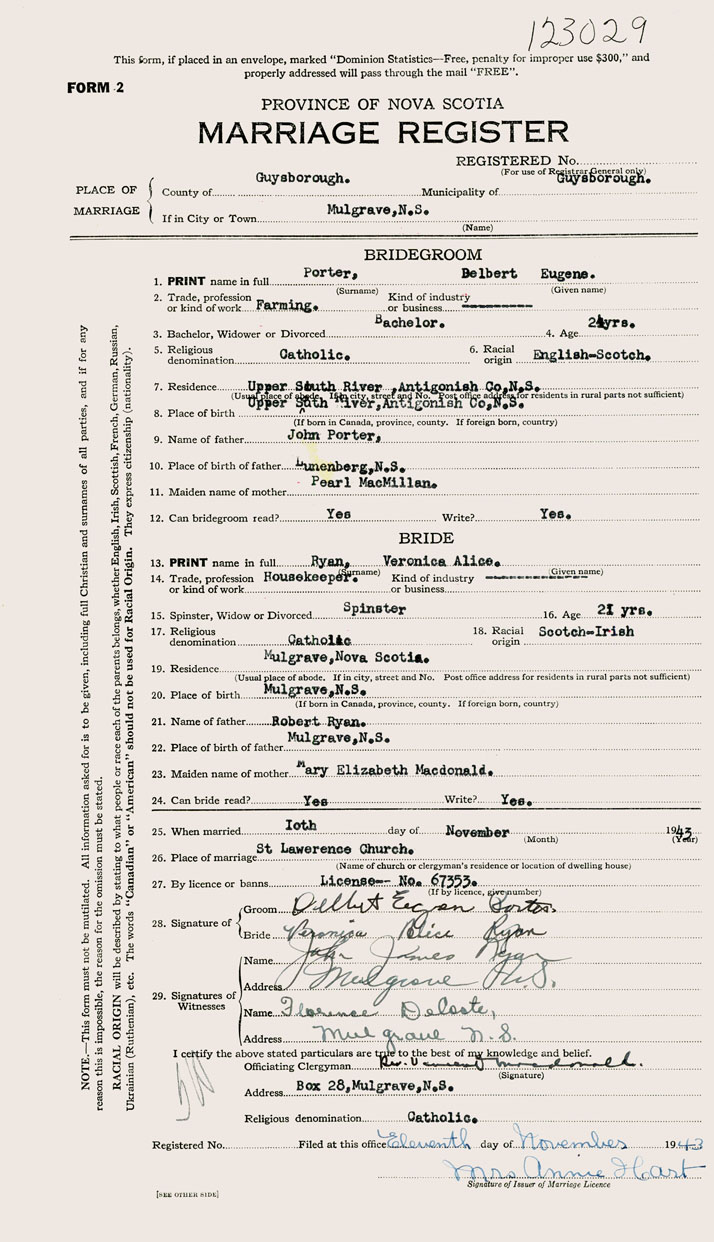 123029
This form, if placed in an envelope, marked "Dominion Statistics—Free, penalty for improper use $300," and
properly addressed will pass through the mail "FREE".
FORM 2
PROVINCE OF NOVA SCOTIA
MARRIAGE REGISTER
REGISTERED No.
(For use of Registrar General only)
PLACE OF MARRIAGE
County of Guysborough. Municipality of Guysborough.
If in City or Town Mulgrave,N.S.
(Name)
BRIDEGROOM
1. PRINT name in full Porter, Delbert Eugene.
(Surname) (Given name)
2. Trade, profession or kind of work Farming. Kind of industry or business ----------
3. Bachelor, Widower or Divorced Bachelor. 4. Age 24yrs.
5. Religious denomination Catholic. 6. Racial origin English-Scotch.
7. Residence Upper South River ,Antigonish Co,N.S.
(Usual place of abode. If in city, street and No. Post office address for residents in rural parts not sufficient)
8. Place of birth Upper Suth River,Antigonish Co,N.S.
(If born in Canada, province, county. If foreign born, country)
9. Name of father John Porter,
10. Place of birth of father Lunenberg,N.S.
11. Maiden name of mother Pearl MacMillan.
12. Can bridegroom read? Yes Write? Yes.
BRIDE
13. PRINT name in full Ryan, Veronica Alice.
(Surname) (Given name)
14. Trade, profession or kind of work Housekeeper. Kind of industry or business ----------
15. Spinster, Widow or Divorced Spinster 16. Age 21 yrs.
17. Religious denomination Catholic 18. Racial origin Scotch-Irish
19. Residence Mulgrave,Nova Scotia.
(Usual place of abode. If in city, street and No. Post office address for residents in rural parts not sufficient)
20. Place of birth Mulgrave,N.S.
(If born in Canada, province, county. If foreign born, country)
21. Name of father Robert Ryan.
22. Place of birth of father Mulgrave,N.S.
23. Maiden name of mother Mary Elizabeth Macdonald.
24. Can bride read? Yes Write? Yes.
25. When married Ioth day of November 1943
(Month) (Year)
26. Place of marriage St Lawerence Church.
(Name of church or clergyman's residence or location of dwelling house)
27. By licence or banns License-- No. 67353.
(If by licence, give number)
28. Signature of
Groom Delbert Eugene Porter.
Bride Veronica Alice Ryan
29. Signatures of Witnesses
Name John James Ryan
Address Mulgrave N.S.
Name Florence Deloste,
Address Mulgrave N.S.
I certify the above stated particulars are true to the best of my knowledge and belief.
Officiating Clergyman Rev. Vincent Macdonald.
(Signature)
Address Box 28,Mulgrave,N.S.
Religious denomination Catholic.
Registered No. Filed at this office Eleventh day of November 1943
Mrs Annie Hart
Signature of Issuer of Marriage Licence
[SEE OTHER SIDE]
NOTE.—This form must not be mutilated. All information asked for is to be given, including full Christian and surnames of all parties, and if for any
reason this is impossible, the reason for the omission must be stated.
RACIAL ORIGIN will be described by stating to what people or race each of the parents belongs, whether English, Irish, Scottish, French, German, Russian,
Ukrainian (Ruthenian), etc. The words "Canadian" or "American" should not be used for Racial Origin. They express citizenship (nationality).